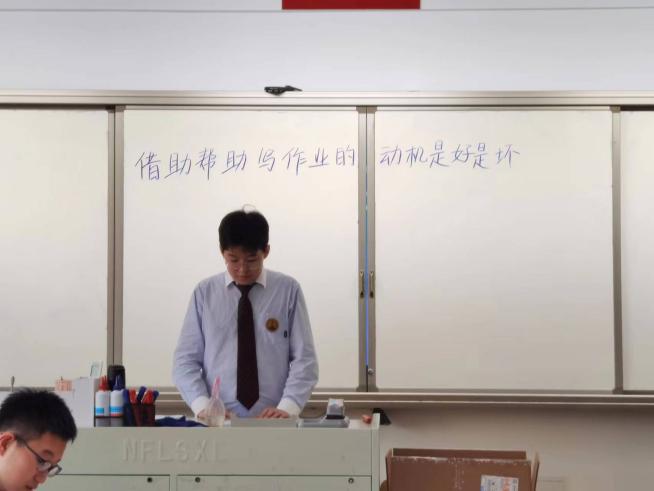 借助帮助写作业的动机是好是坏
NFLSXL